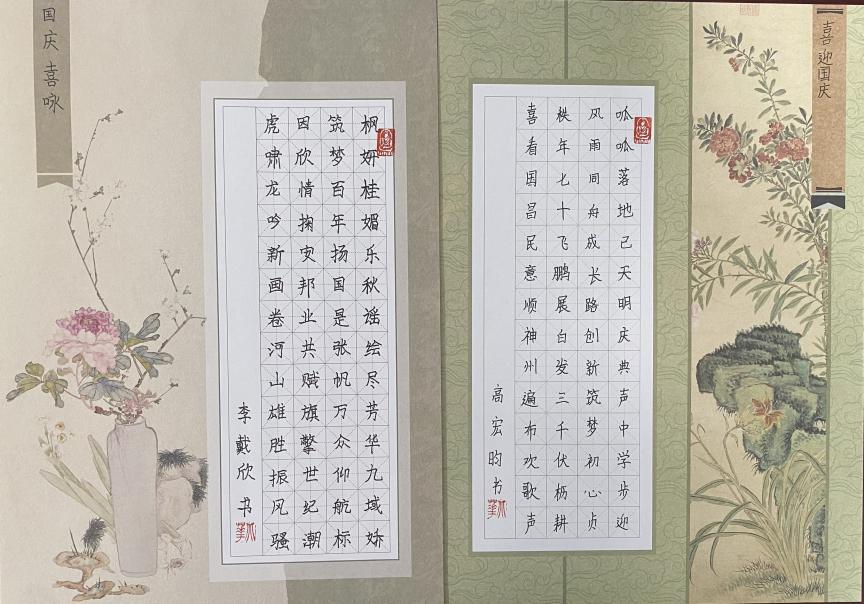 喜迎国庆
呱呱落地已天明庆典声中学步迎
风雨同舟成长路创新筑梦初心贞
秩年七十飞鹏展白发三千伏枥耕
喜看国昌民意顺神州遍布欢歌声
高宏昀书
国庆喜咏
枫妍桂媚乐秋谣绘尽芳华九域娇
筑梦百年扬国是张帆万众仰航标
因欣情掬安邦业共赋旗擎世纪潮
虎啸龙吟新画卷河山雄胜振风骚
李戴欣书